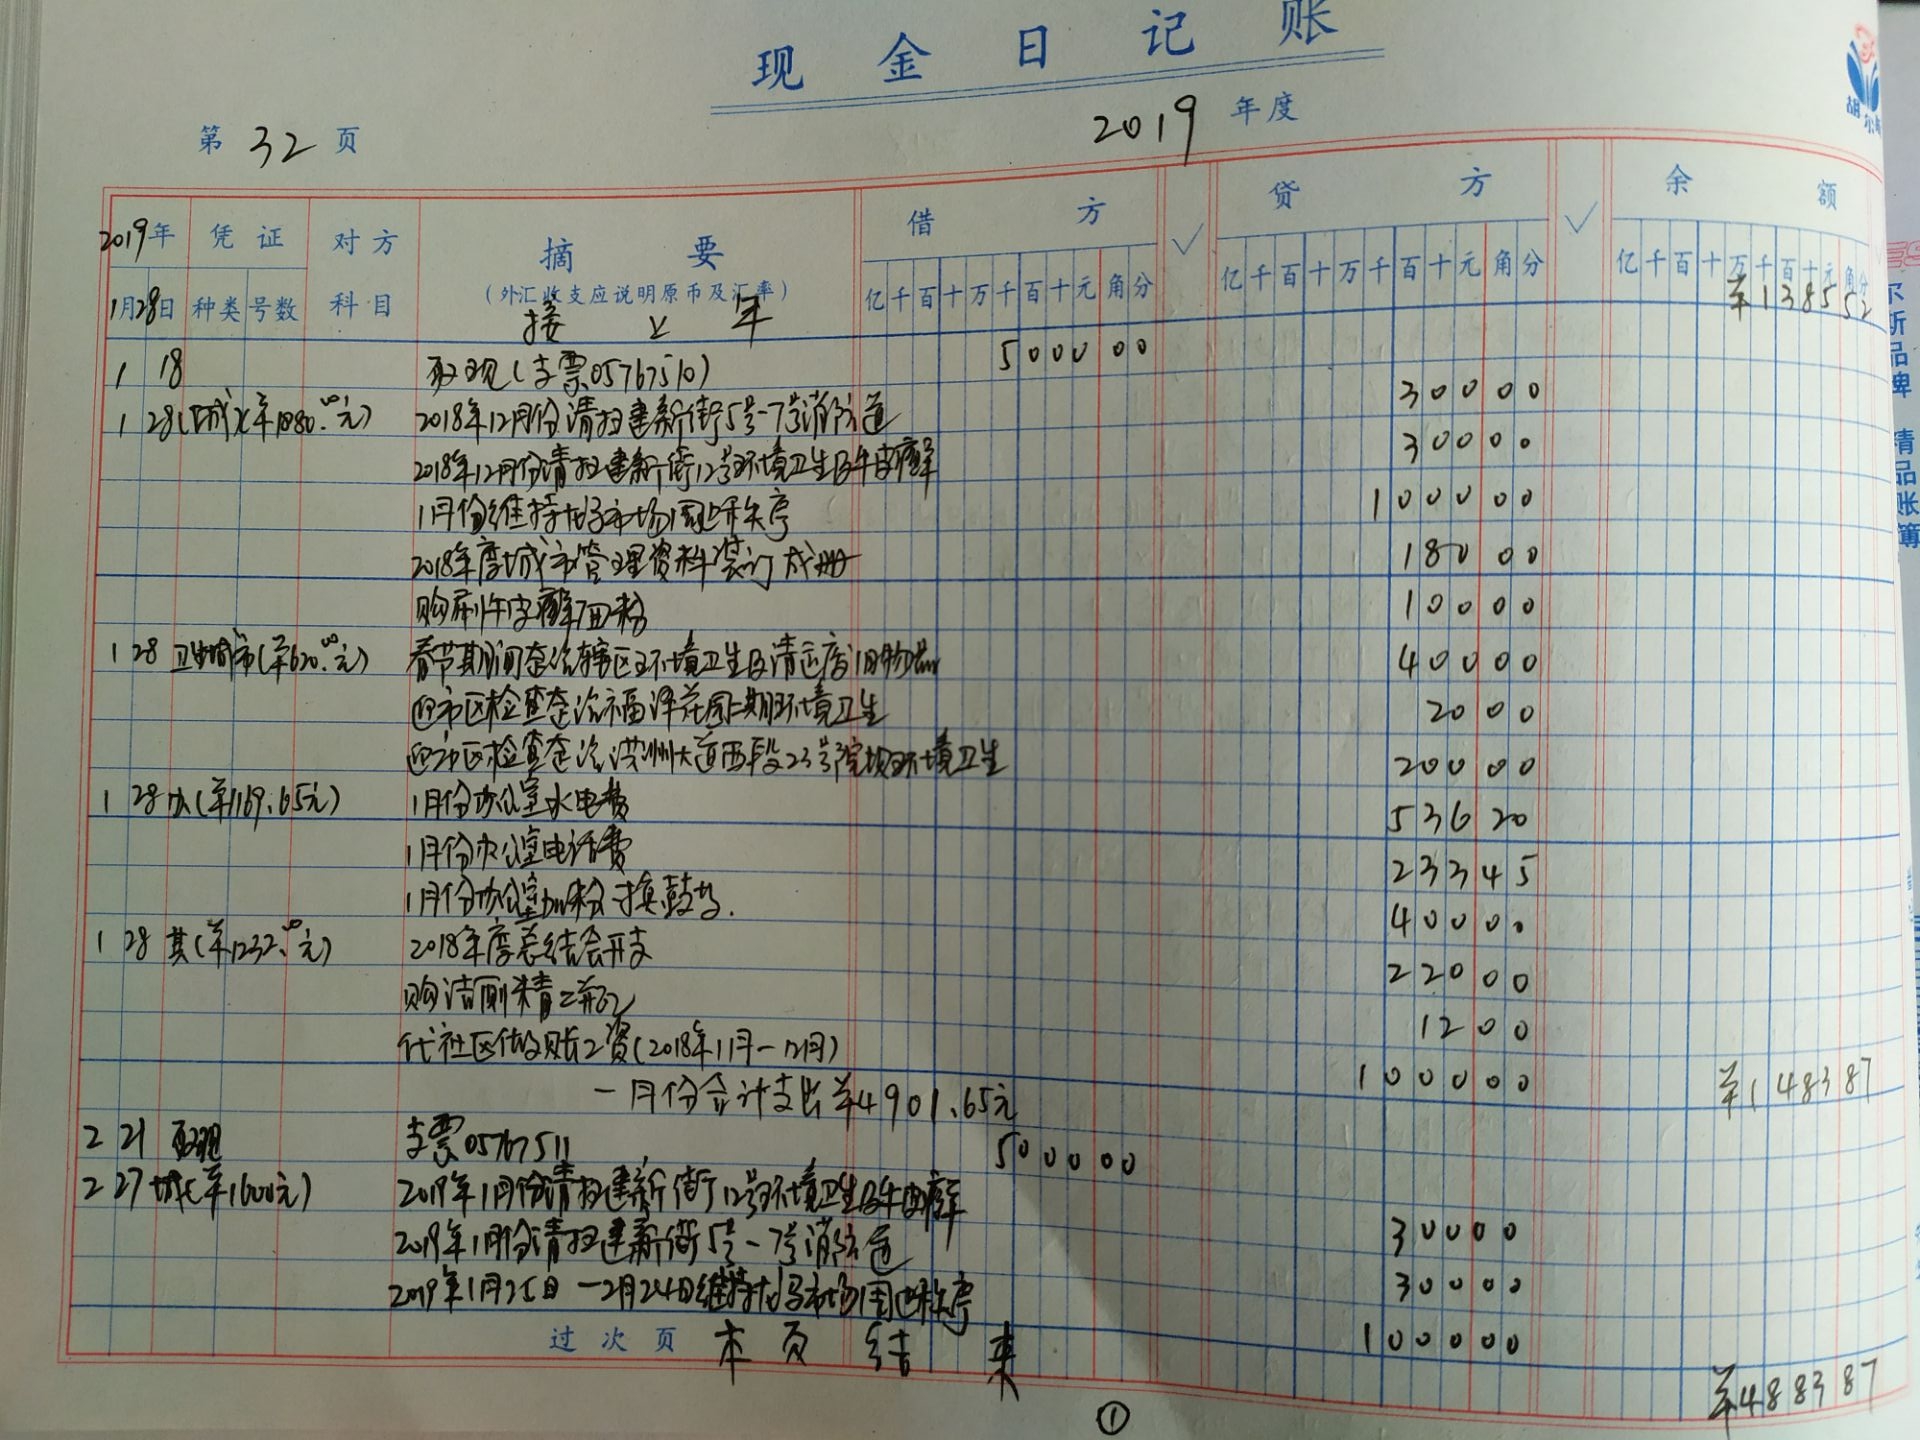 现金日记账
第 32 页
2019 年度
2019年 凭证 对方科目 摘要 借方 ✓ 贷方 ✓ 余额
1月28日 种类 号数 (外汇收支应说明原币及汇率) 亿千百十万千百十元角分 亿千百十万千百十元角分 亿千百十万千百十元角分
接上年 ¥138552
1 18 取现(支票05767510) 500000
1 28 (城)(¥1880.00元) 2018年12月份清扫建新街5号-7号消防通道 30000
2018年12月份清扫建新街12号环境卫生及牛皮癣 30000
1月份维持 市场周边秩序 100000
2018年度城市管理资料装订成册 18000
购刷牛皮癣面粉 10000
1 28 卫生城市(¥620.00元) 春节期间整治辖区环境卫生及清运废旧物品 40000
迎市区检查整治福泽花园二期环境卫生 2000
迎市区检查整治滨洲大道西段23号院坝环境卫生 20000
1 28 办(¥1169.65元) 1月份办公室水电费 53620
1月份办公室电话费 23345
1月份办公室加粉、换鼓 40000
1 28 其(¥1232.00元) 2018年度总结会开支 22000
购洁厕精二瓶 1200
代社区做账工资(2018年11月-12月) 100000
一月份合计支出¥4901.65元 ¥148387
2 21 取现 支票05767511 500000
2 27 城(¥1600元) 2019年1月份清扫建新街12号环境卫生及牛皮癣 30000
2019年1月份清扫建新街5号-7号消防通道 30000
2019年1月25日-2月24日维持 市场周边秩序 100000
过次页 本页结束 ¥488387
①